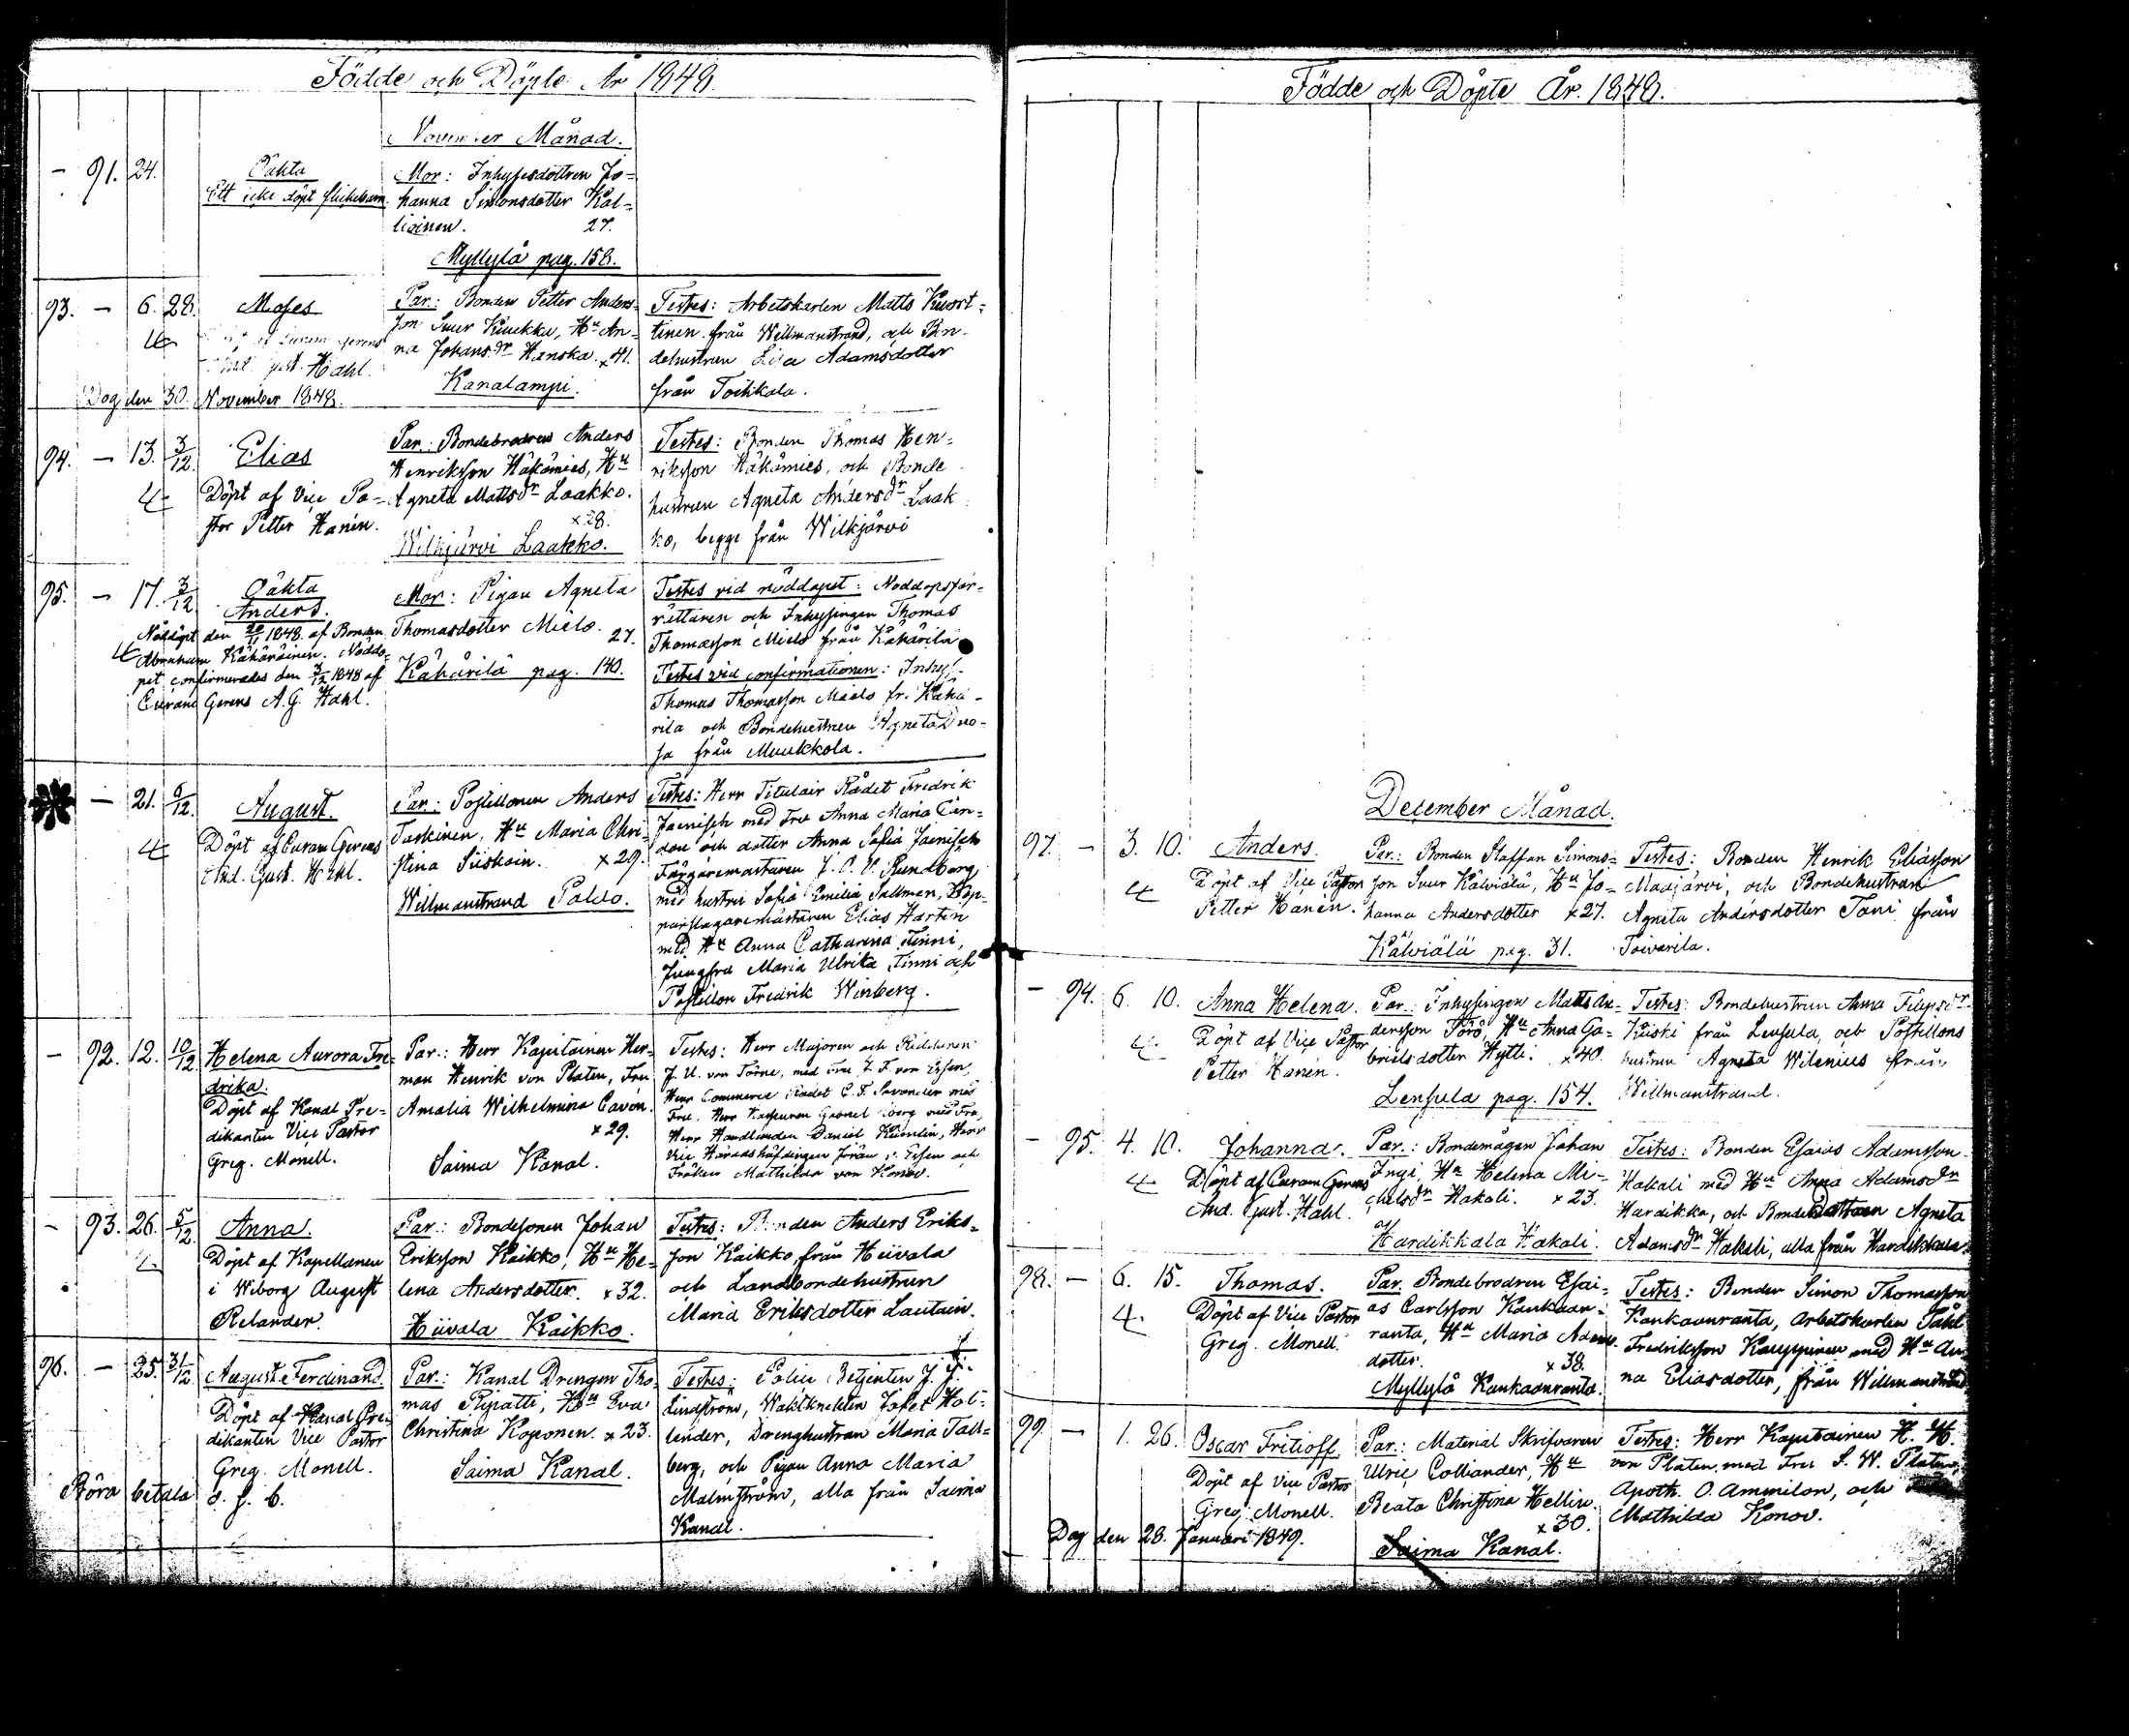 Födde och Döpte År 1848.
November Månad.
- 91. 24.
Oäkta
Ett icke döpt flickebarn.
Mor: Inhysesdottren Jo=
hanna Simonsdotter Kal=
lioinen. 27.
Myllylä pag. 158.
93. - 6. 28.
Moses
Hahl.
Dog den 30. November 1848.
Par: Bonden Petter Anders=
son Suur Kuukka, Hu An=
na Johansdr Hanska. x 41.
Kanalampi.
Testes: Arbetskarlen Matts Kuort=
tinen från Willmanstrand, och Bon=
dehustrun Lisa Adamsdotter
från Toikkala.
94. - 13. 3/12.
Elias
Döpt af Vice Pa=
stor Petter Hanén.
Par: Bondebrodren Anders
Henriksson Häkämies, Hu
Agneta Mattsdr Laakko.
x 28.
Wilkjärvi Laakko.
Testes: Bonden Thomas Hen=
riksson Häkämies, och Bonde
hustrun Agneta Andersdr Laak
ko, begge från Wilkjärvi
95. - 17. 3/12.
Oäkta
Anders.
Nöddöpt den 20/11 1848. af Bonden
Abraham Kähäräinen. Nöddo=
pet confirmerades den 3/12 1848 af
Curam Gerens A. G. Hahl.
Mor: Pigan Agneta
Thomasdotter Mielo.
27.
Kähärilä pag. 140.
Testes vid nöddopet: Nöddopsför=
rättaren och Inhysingen Thomas
Thomasson Mielo från Kähärilä
Testes vid confirmationen: Inhys.
Thomas Thomasson Mielo fr. Kähä=
rilä och Bondehustrun Agneta Duo=
sa från Muukkola.
- 21. 6/12.
August.
Döpt af Curam Gerens
And. Gust. Hahl.
Par: Postillonen Anders
Taskinen, Hu Maria Chri=
stina Siiskoin. x 29.
Willmanstrand Paldo.
Testes: Herr Titulair Rådet Fredrik
Jaenisch med Fru Anna Maria Can=
don och dotter Anna Sofia Jaenisch
Färgaremästaren J. C. V. Rundberg
med hustru Sofia Emilia Sallman, Kop=
parslagaremästaren Elias Harten
med Hu Anna Catharina Finni,
Jungfru Maria Ulrika Finni och
Postillon Fredrik Winberg.
- 92. 12. 10/12
Helena Aurora Fre=
drika.
Döpt af Kanal Pre=
dikanten Vice Pastor
Greg. Monell.
Par: Herr Kapitainen Her=
man Henrik von Platen, Fru
Amalia Wilhelmina Cavén.
x 29.
Saima Kanal.
Testes: Herr Majoren och Riddaren
J. U. von Törne, med Fru J. F. von Essen,
Herr Commerce Rådet C. F. Savander med
Fru, Herr Kasseuren Gabriel Åberg med Fru,
Herr Handlanden Daniel Kumlin, Herr
Vice Häradshöfdingen Jöran v. Essen och
Fröken Mathilda von Konov.
- 93. 26. 5/12.
Anna.
Döpt af Kapellanen
i Wiborg August
Relander.
Par: Bondesonen Johan
Eriksson Kaikko, Hu He=
lena Andersdotter. x 32.
Hiivala Kaikko.
Testes: Bonden Anders Eriks=
son Kaikko från Hiivala
och Landbondehustrun
Maria Eriksdotter Lautain.
96. - 25. 31/12
August Ferdinand.
Döpt af Kanal Pre=
dikanten Vice Pastor
Greg. Monell.
Böra betala d. f. b.
Par: Kanal Drengen Tho=
mas Ripatti, Hu Eva
Christina Koponen. x 23.
Saima Kanal.
Testes: Police Betjenten J. J.
Lindström, Waktknekten Jakob Hol=
lender, Drenghustrun Maria Tall=
berg, och Pigan Anna Maria
Malmström, alla från Saima
Kanal.
Födde och Döpte År. 1848.
December Månad.
97. - 3. 10.
Anders.
Döpt af Vice Pastor
Petter Hanén.
Par: Bonden Staffan Simons=
son Suur Kälviälä, Hu Jo=
hanna Andersdotter x 27.
Kälviälä pag. 31.
Testes: Bonden Henrik Eliasson
Maajärvi, och Bondehustrun
Agneta Andersdotter Toni från
Toivarila.
- 94. 6. 10.
Anna Helena.
Döpt af Vice Pastor
Petter Hanén.
Par: Inhysingen Matts An=
dersson Törö, Hu Anna Ga=
brielsdotter Hytti. x 40.
Lensula pag. 154.
Testes: Bondehustrun Anna Filipsdr
Kiiski från Lensula, och Postillons
hustrun Agneta Wilenius från
Willmanstrand.
- 95. 4. 10.
Johanna.
Döpt af Curam Gerens
And. Gust. Hahl.
Par: Bondemågen Johan
Ingi, Hu Helena Mi=
chelsdr Hakali. x 23.
Hardikkala Hakali.
Testes: Bonden Esaias Adamsson
Hakali med Hu Anna Adamsdr
Hardikka, och Bondedottren Agneta
Adamsdr Hakali, alla från Hardikkala.
98. - 6. 15.
Thomas.
Döpt af Vice Pastor
Greg. Monell.
Par. Bondebrodren Esai=
as Carlsson Kaukaan=
ranta, Hu Maria Adams
dotter. x 38.
Myllylä Kaukaanranta.
Testes: Bonden Simon Thomasson
Kaukaanranta, Arbetskarlen Påhl
Fredriksson Kauppinen med Hu An
na Eliasdotter, från Willmanstrand
99. - 1. 26.
Oscar Fritioff
Döpt af Vice Pastor
Greg. Monell.
Dog den 28. Januari 1849.
Par: Material Skrifvaren
Ulric Colliander, Hu
Beata Christina Hellin.
x 30.
Saima Kanal.
Testes: Herr Kapitainen H. H.
von Platen, med Fru S. W. Platen,
Apoth. O. Ammilon, och
Mathilda Konov.